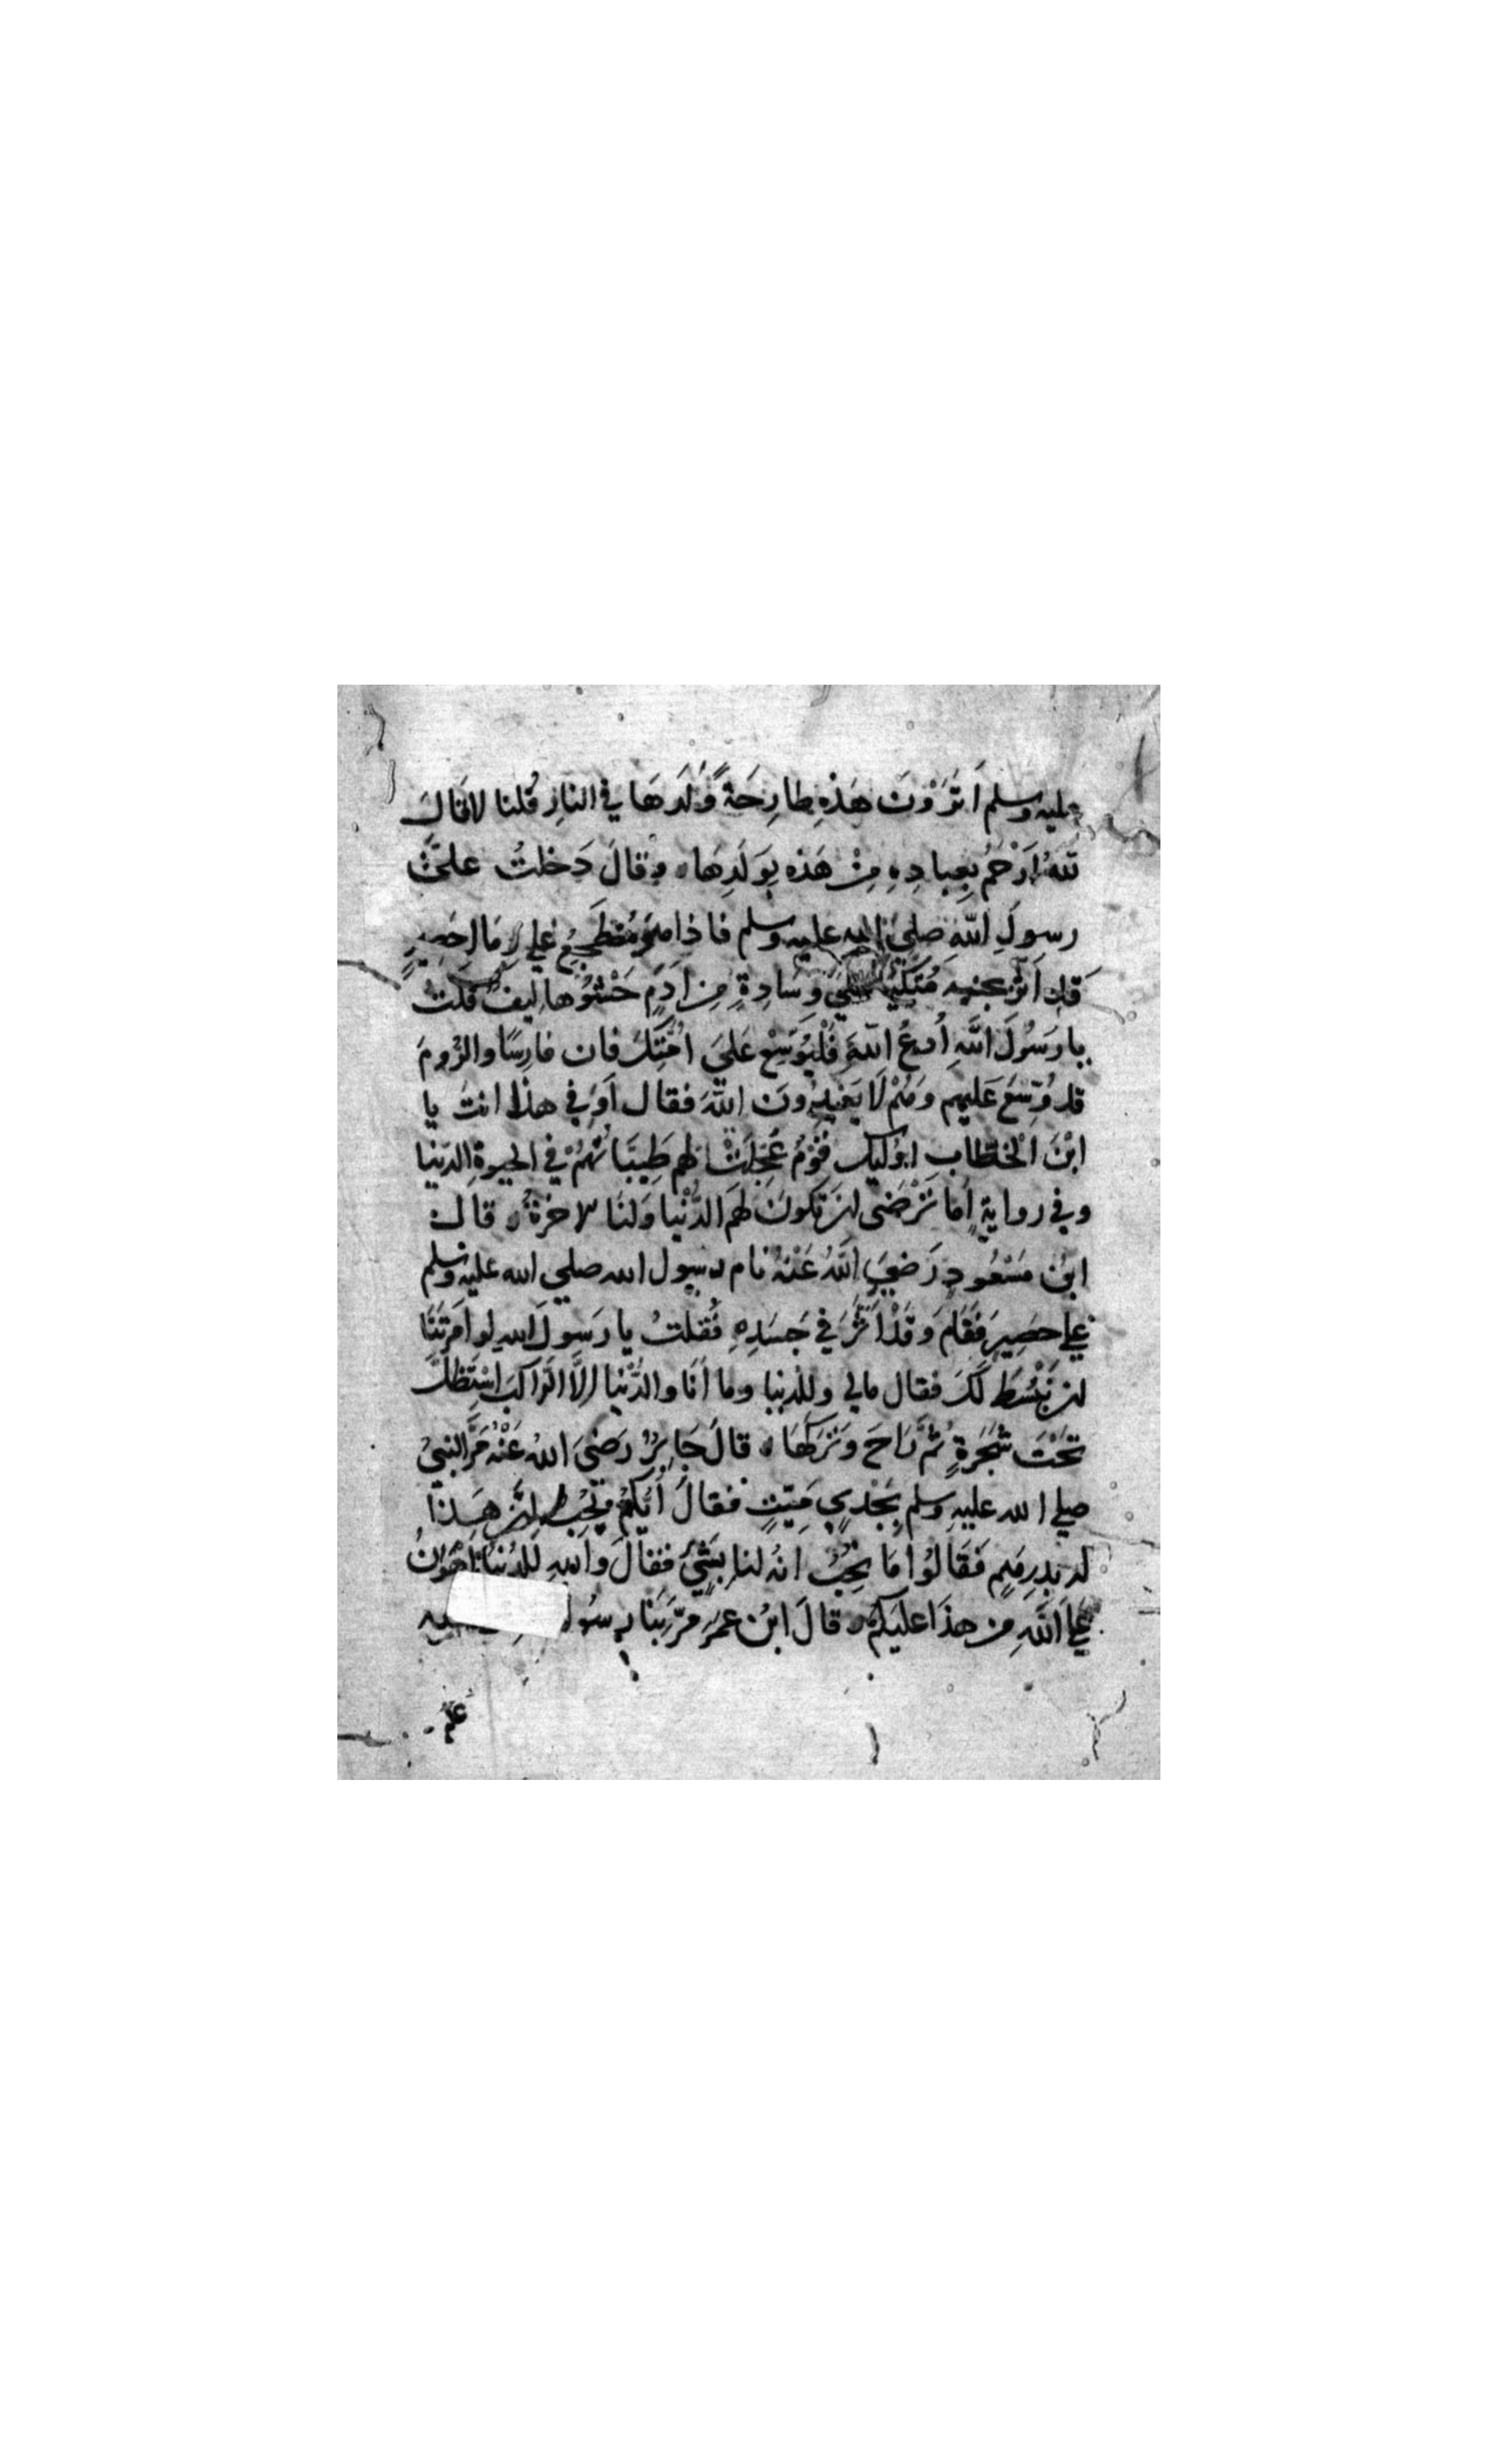 عليه وسلم اَتَرَوْنَ هَذِهِ طارِحَةً وَلَدَهَا في النارِ قُلنا لا فقالَ
للّهُ اَرْحَمُ بِعِبادِهِ مِنْ هَذه بِوَلَدِهَا وقالَ دَخلتُ علىَ
رسولِ اللّهِ صلى الله عليه وسلم فاذا هو مُضْطَجِعٌ على رِمَالِ حَصِيرٍ
قد اَثَّرَ بجنبه مُتَّكِيًا على وِسَادةٍ مِن اَدَمٍ حَشْوُها لِيف قلت
يا رَسُولَ اللَّهِ اُدعُ اللّهَ فَلْيُوَسِّعْ عَلىَ اُمَّتِكَ فان فارِسًا والرُّومَ
قد وُسِّعَ عَليهِم وَهُمْ لَا يَعْبُدُونَ اللّهَ فقال اَوَ في هذا انتَ يا
ابْنَ الْخَطّابِ اوُلَيِك قَوْمٌ عُجِّلَتْ لهم طَيِّبَاتُهُمْ في الحيوةِ الدُّنيا
وفي روايةٍ اَما تَرْضَى ان تكونَ لهمُ الدُّنْيا وَلنَا الاخرةُ قال
ابْنُ مَسْعُودٍ رَضِيَ اللَّهُ عَنْهُ نام رسول الله صلي الله عليه وسلم
علي حصيرٍ فَقَامَ وَقَدْ اَثَّرَ في جَسَدِهِ فُقلتُ يا رَسولَ اللهِ لو اَمَرْتَنَا
ان نَبْسُطَ لَكَ فقال مالي وللدنيا وما اَنَا والدُّنْيا اِلاَّ كَالرَّاكِبِ اسْتَظَلَّ
تَحْتَ شَجَرَةٍ ثُمَّ رَاحَ وَتَرَكَهَا قالَ جَابِرٌ رَضيَ اللهُ عَنْهُ مَرَّ النبيُّ
صلي الله عليهِ وسلم بِجَدْيٍ مَيِّتٍ فقالَ اَيُّكُمْ يُحِبُّ اَنَّ هَذا
له بدِرهَمٍ فَقَالُوا مَا نُحِبُّ انهُ لنا بِشَيْءٍ فقالَ وَاللهِ لَلدُّنْيَا اَهْوَنُ
علي اللَّهِ من هذَا عَليكُمْ قالَ ابْنُ عمَرَ مَرَّ بِنَا رسُول